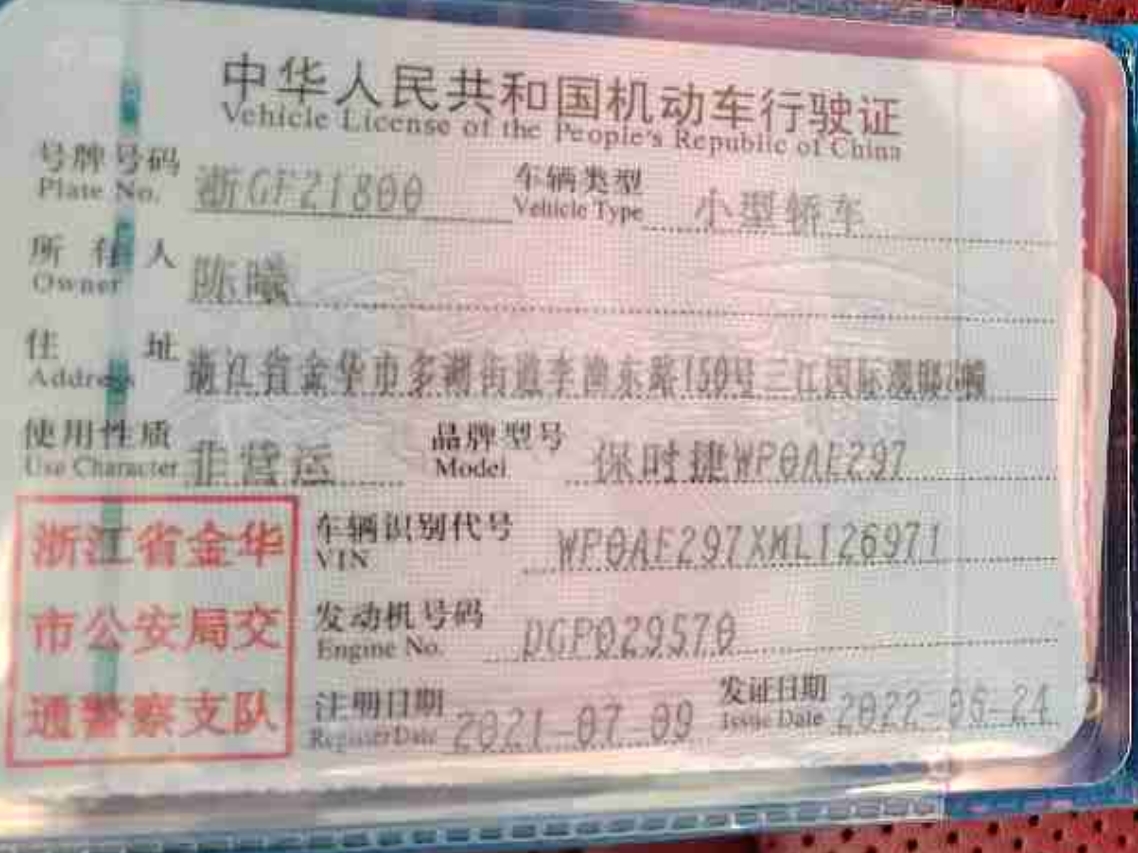 中华人民共和国机动车行驶证
Vehicle License of the People's Republic of China
号牌号码 浙GF21800 车辆类型 小型轿车
Plate No. Vehicle Type
所有人 陈曦
Owner
住 址 浙江省金华市多湖街道李渔东路150号三江国际
Address
使用性质 非营运 品牌型号 保时捷WP0AE297
Use Character Model
浙江省金华 车辆识别代号 WP0AE297XML126971
VIN
市公安局交 发动机号码 DGP029570
Engine No.
通警察支队 注册日期 2021-07-09 发证日期 2022-06-24
Register Date Issue Date